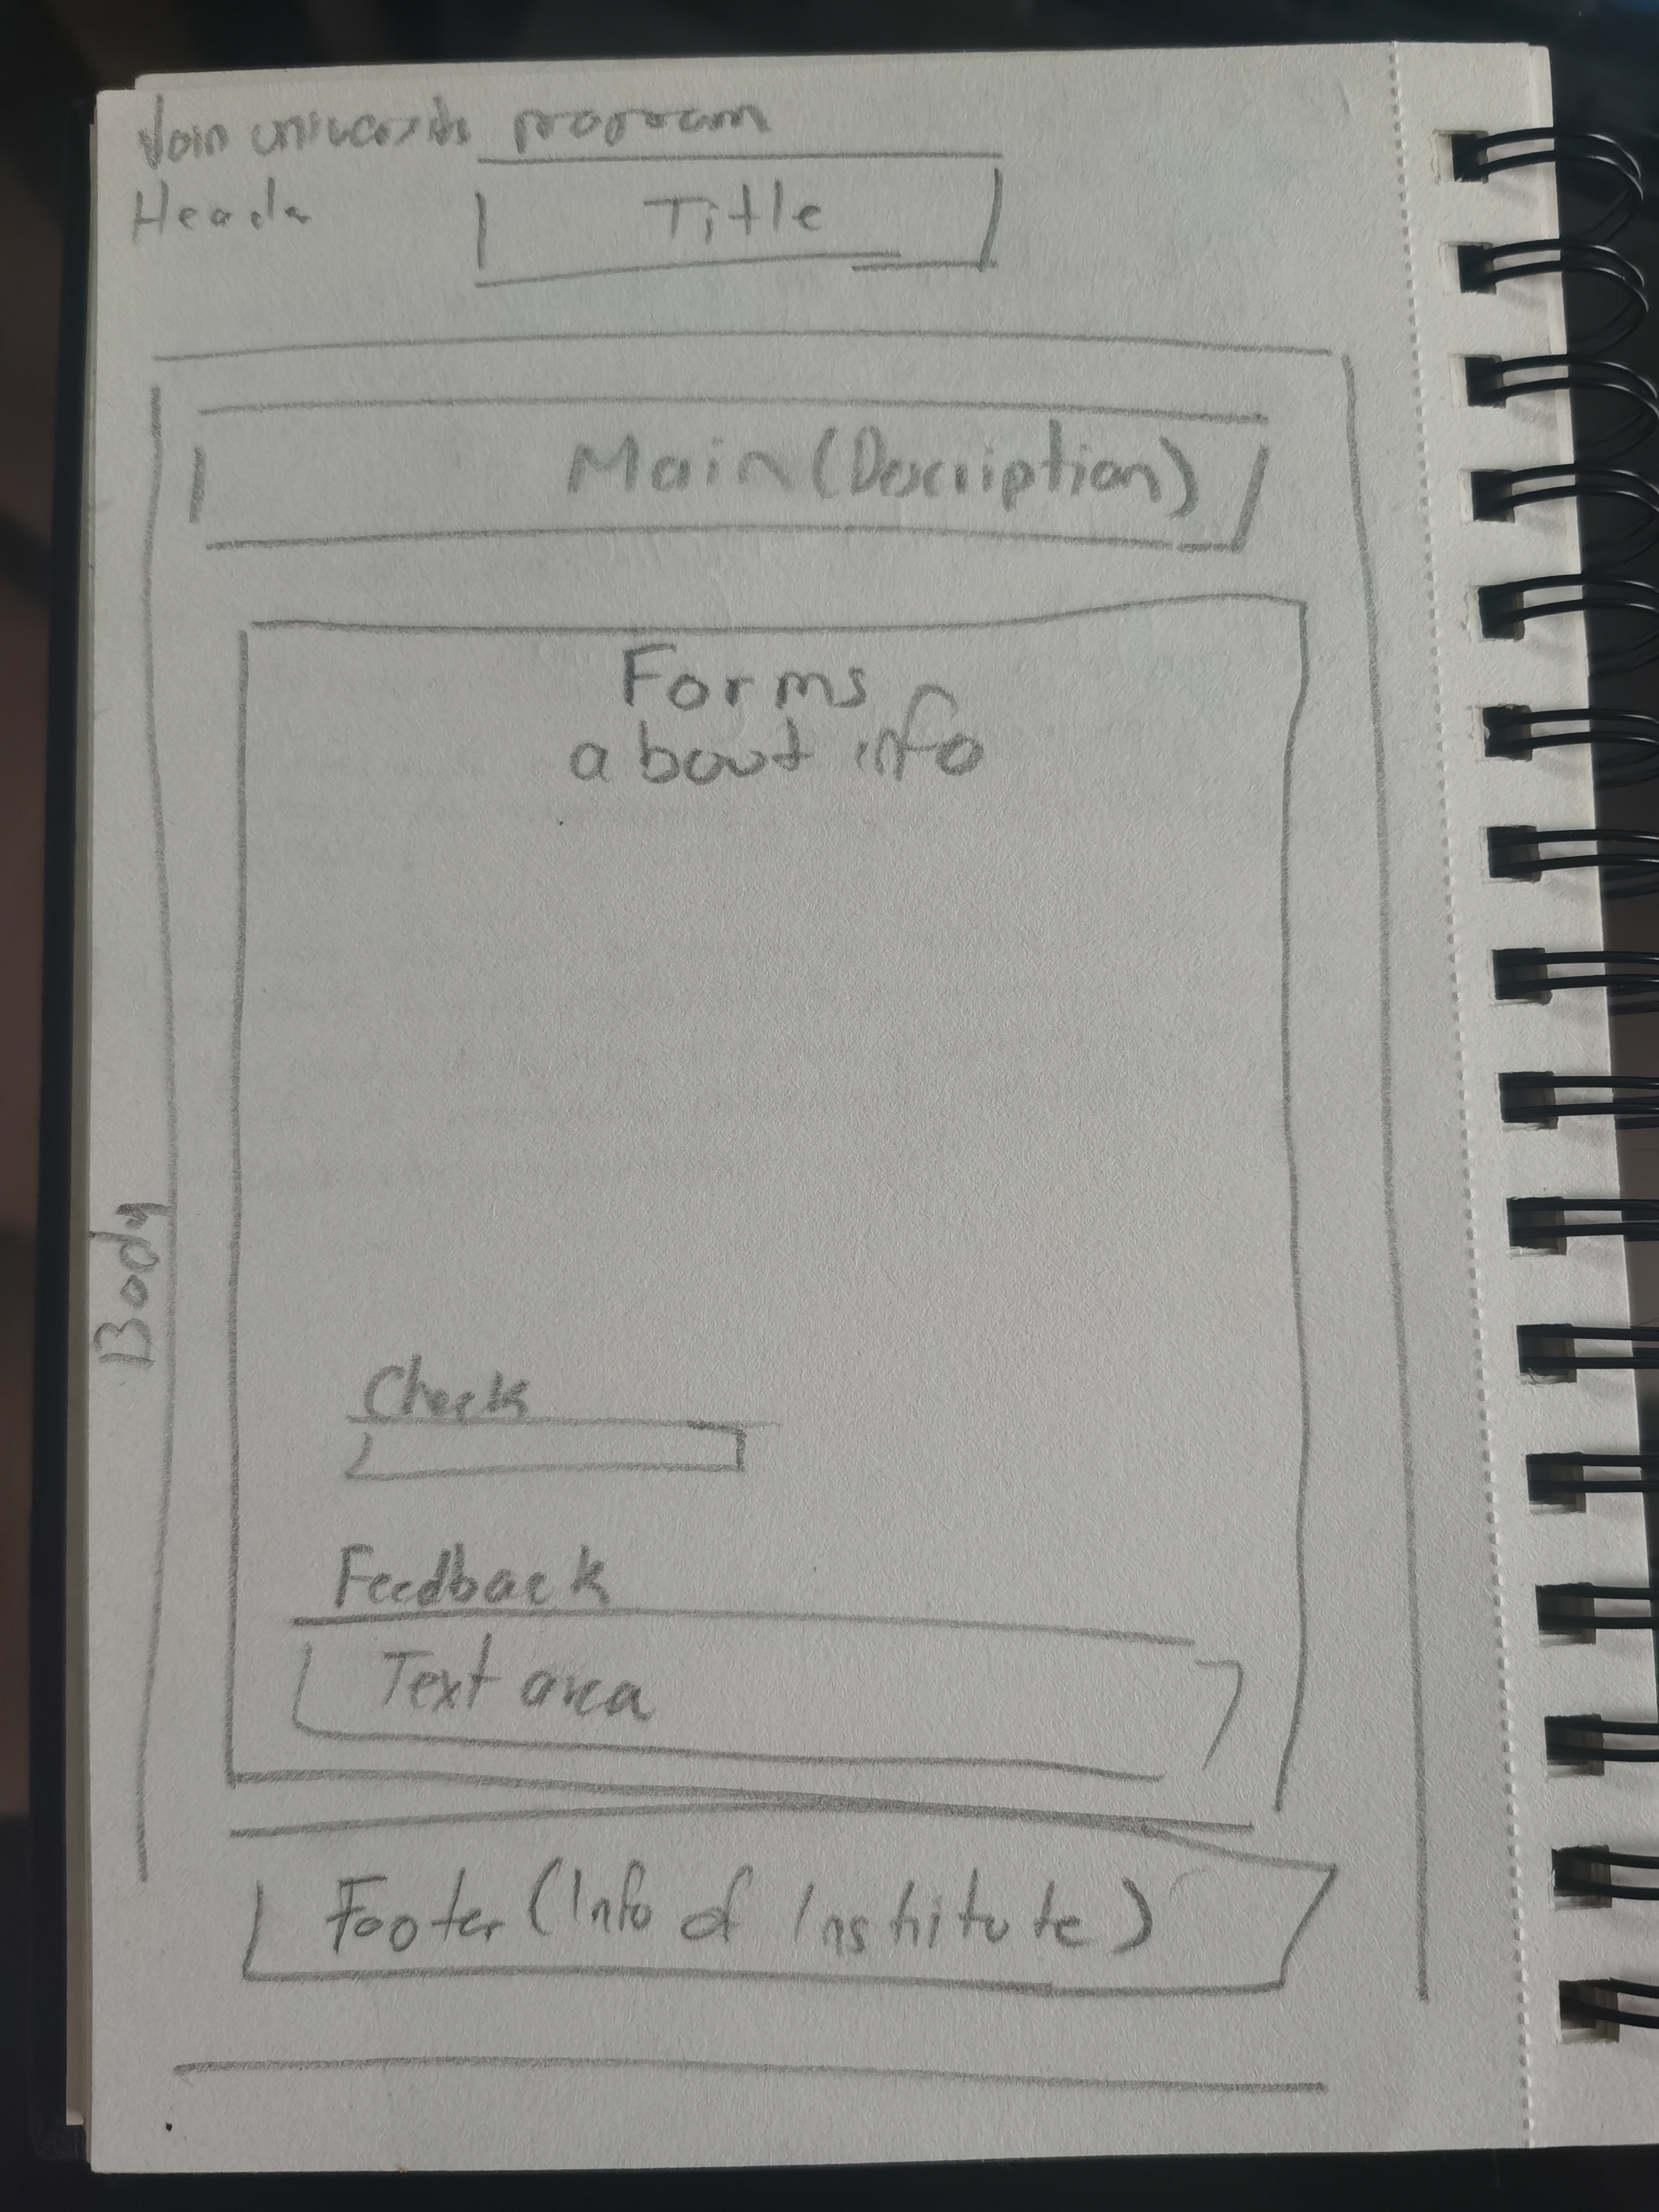 Join university program
Header
Title
Main (Description)
Forms
about info
Body
Check
Feedback
Text area
Footer (Info of Institute)